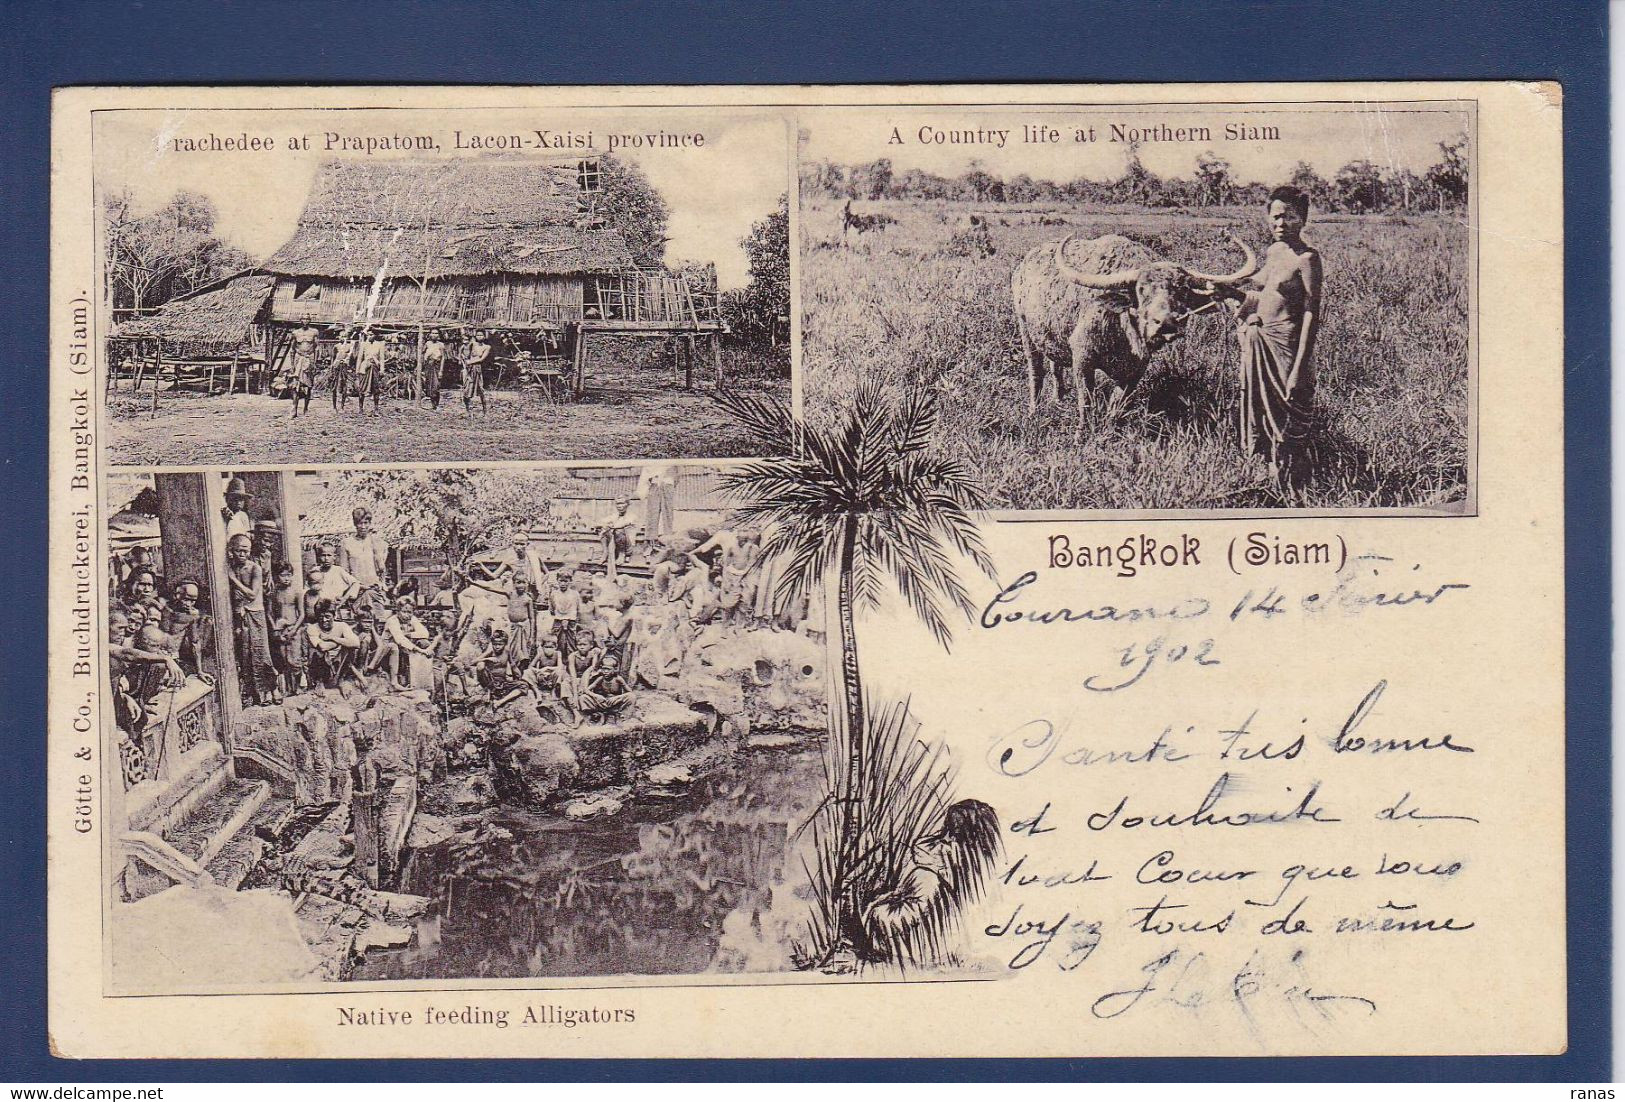 rachedee at Prapatom, Lacon-Xaisi province
A Country life at Northern Siam
Götte & Co., Buchdruckerei, Bangkok (Siam).
Bangkok (Siam)
Tourane 14 Février
1902
Santé très bonne
et souhaite de
tout Coeur que vous
soyez tous de même
Native feeding Alligators
ranas